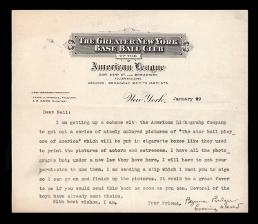 THE GREATER NEW YORK
BASE BALL CLUB
OF THE
American League
New York, January 29
Dear Neil:
I am getting up a scheme with The American Lithograph Company
to get out a series of nicely colored pictures of "The star ball play-
ers of America" which will be put in cigarette boxes like they used
to print the pictures of actors and actresses. I have all the photo-
graphs but, under a new law they have here, I will have to get your
permission to use them. I am sending a slip which I want you to sign
so I can go on and finish up the pictures. It would be a great favor
to me if you would send this back as soon as you can. Several of the
boys have already sent theirs.
With best wishes, I am, Your friend,